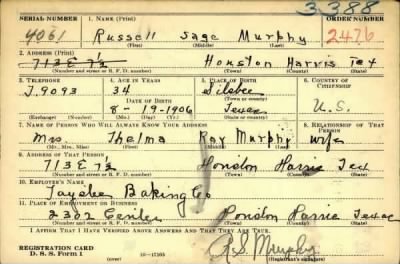 3,388
SERIAL NUMBER 1. NAME (Print) ORDER NUMBER
4061 Russell Sage Murphy 2476
(First) (Middle) (Last)
2. ADDRESS (Print)
713 E 7½ Houston Harris Tex
(Number and street or R. F. D. number) (Town) (County) (State)
3. TELEPHONE 4. AGE IN YEARS 5. PLACE OF BIRTH 6. COUNTRY OF CITIZENSHIP
J.9093 34 Silsbee
DATE OF BIRTH (Town or county)
8-19-1906 Texas U.S.
(Exchange) (Number) (Mo.) (Day) (Yr.) (State or country)
7. NAME OF PERSON WHO WILL ALWAYS KNOW YOUR ADDRESS 8. RELATIONSHIP OF THAT PERSON
Mrs. Thelma Ray Murphy wife
(Mr., Mrs., Miss) (First) (Middle) (Last)
9. ADDRESS OF THAT PERSON
713 E 7½ Houston Harris Tex
(Number and street or R. F. D. number) (Town) (County) (State)
10. EMPLOYER'S NAME
Baking Co
11. PLACE OF EMPLOYMENT OR BUSINESS
2302 Center Houston Harris Texas
(Number and street or R. F. D. number) (Town) (County) (State)
I AFFIRM THAT I HAVE VERIFIED ABOVE ANSWERS AND THAT THEY ARE TRUE.
REGISTRATION CARD
D. S. S. Form 1 16—17105 R.S. Murphy